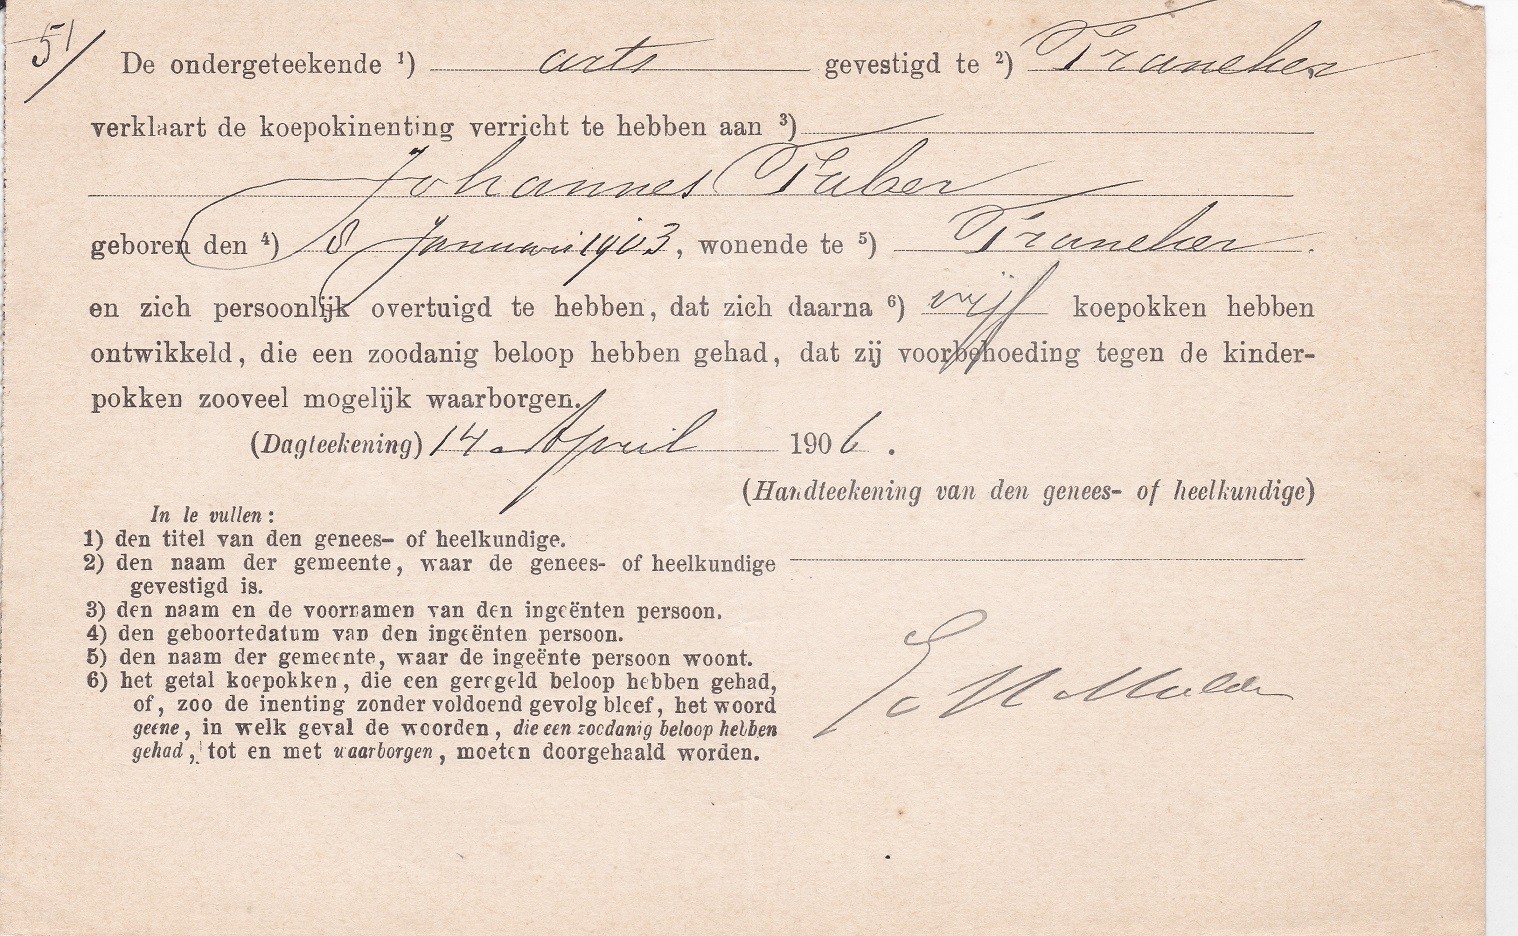 51/
De ondergeteekende ¹) arts gevestigd te ²) Franeker
verklaart de koepokinenting verricht te hebben aan ³)
Johannes Faber
geboren den ⁴) 8 Januari 1903, wonende te ⁵) Franeker.
en zich persoonlijk overtuigd te hebben, dat zich daarna ⁶) vijf koepokken hebben
ontwikkeld, die een zoodanig beloop hebben gehad, dat zij voorbehoeding tegen de kinder-
pokken zooveel mogelijk waarborgen.
(Dagteekening) 14 April 1906.
(Handteekening van den genees- of heelkundige)
In te vullen:
1) den titel van den genees- of heelkundige.
2) den naam der gemeente, waar de genees- of heelkundige
gevestigd is.
3) den naam en de voornamen van den ingeënten persoon.
4) den geboortedatum van den ingeënten persoon.
5) den naam der gemeente, waar de ingeënte persoon woont.
6) het getal koepokken, die een geregeld beloop hebben gehad,
of, zoo de inenting zonder voldoend gevolg bleef, het woord
geene, in welk geval de woorden, die een zoodanig beloop hebben
gehad, tot en met waarborgen, moeten doorgehaald worden.
Mulder